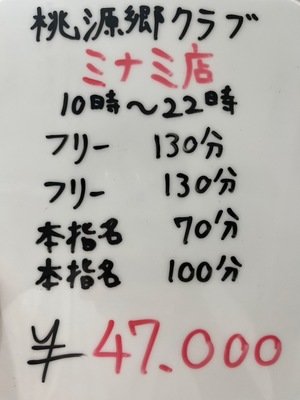 桃源郷クラブ
ミナミ店
10時～22時
フリー 130分
フリー 130分
本指名 70分
本指名 100分
¥47.000